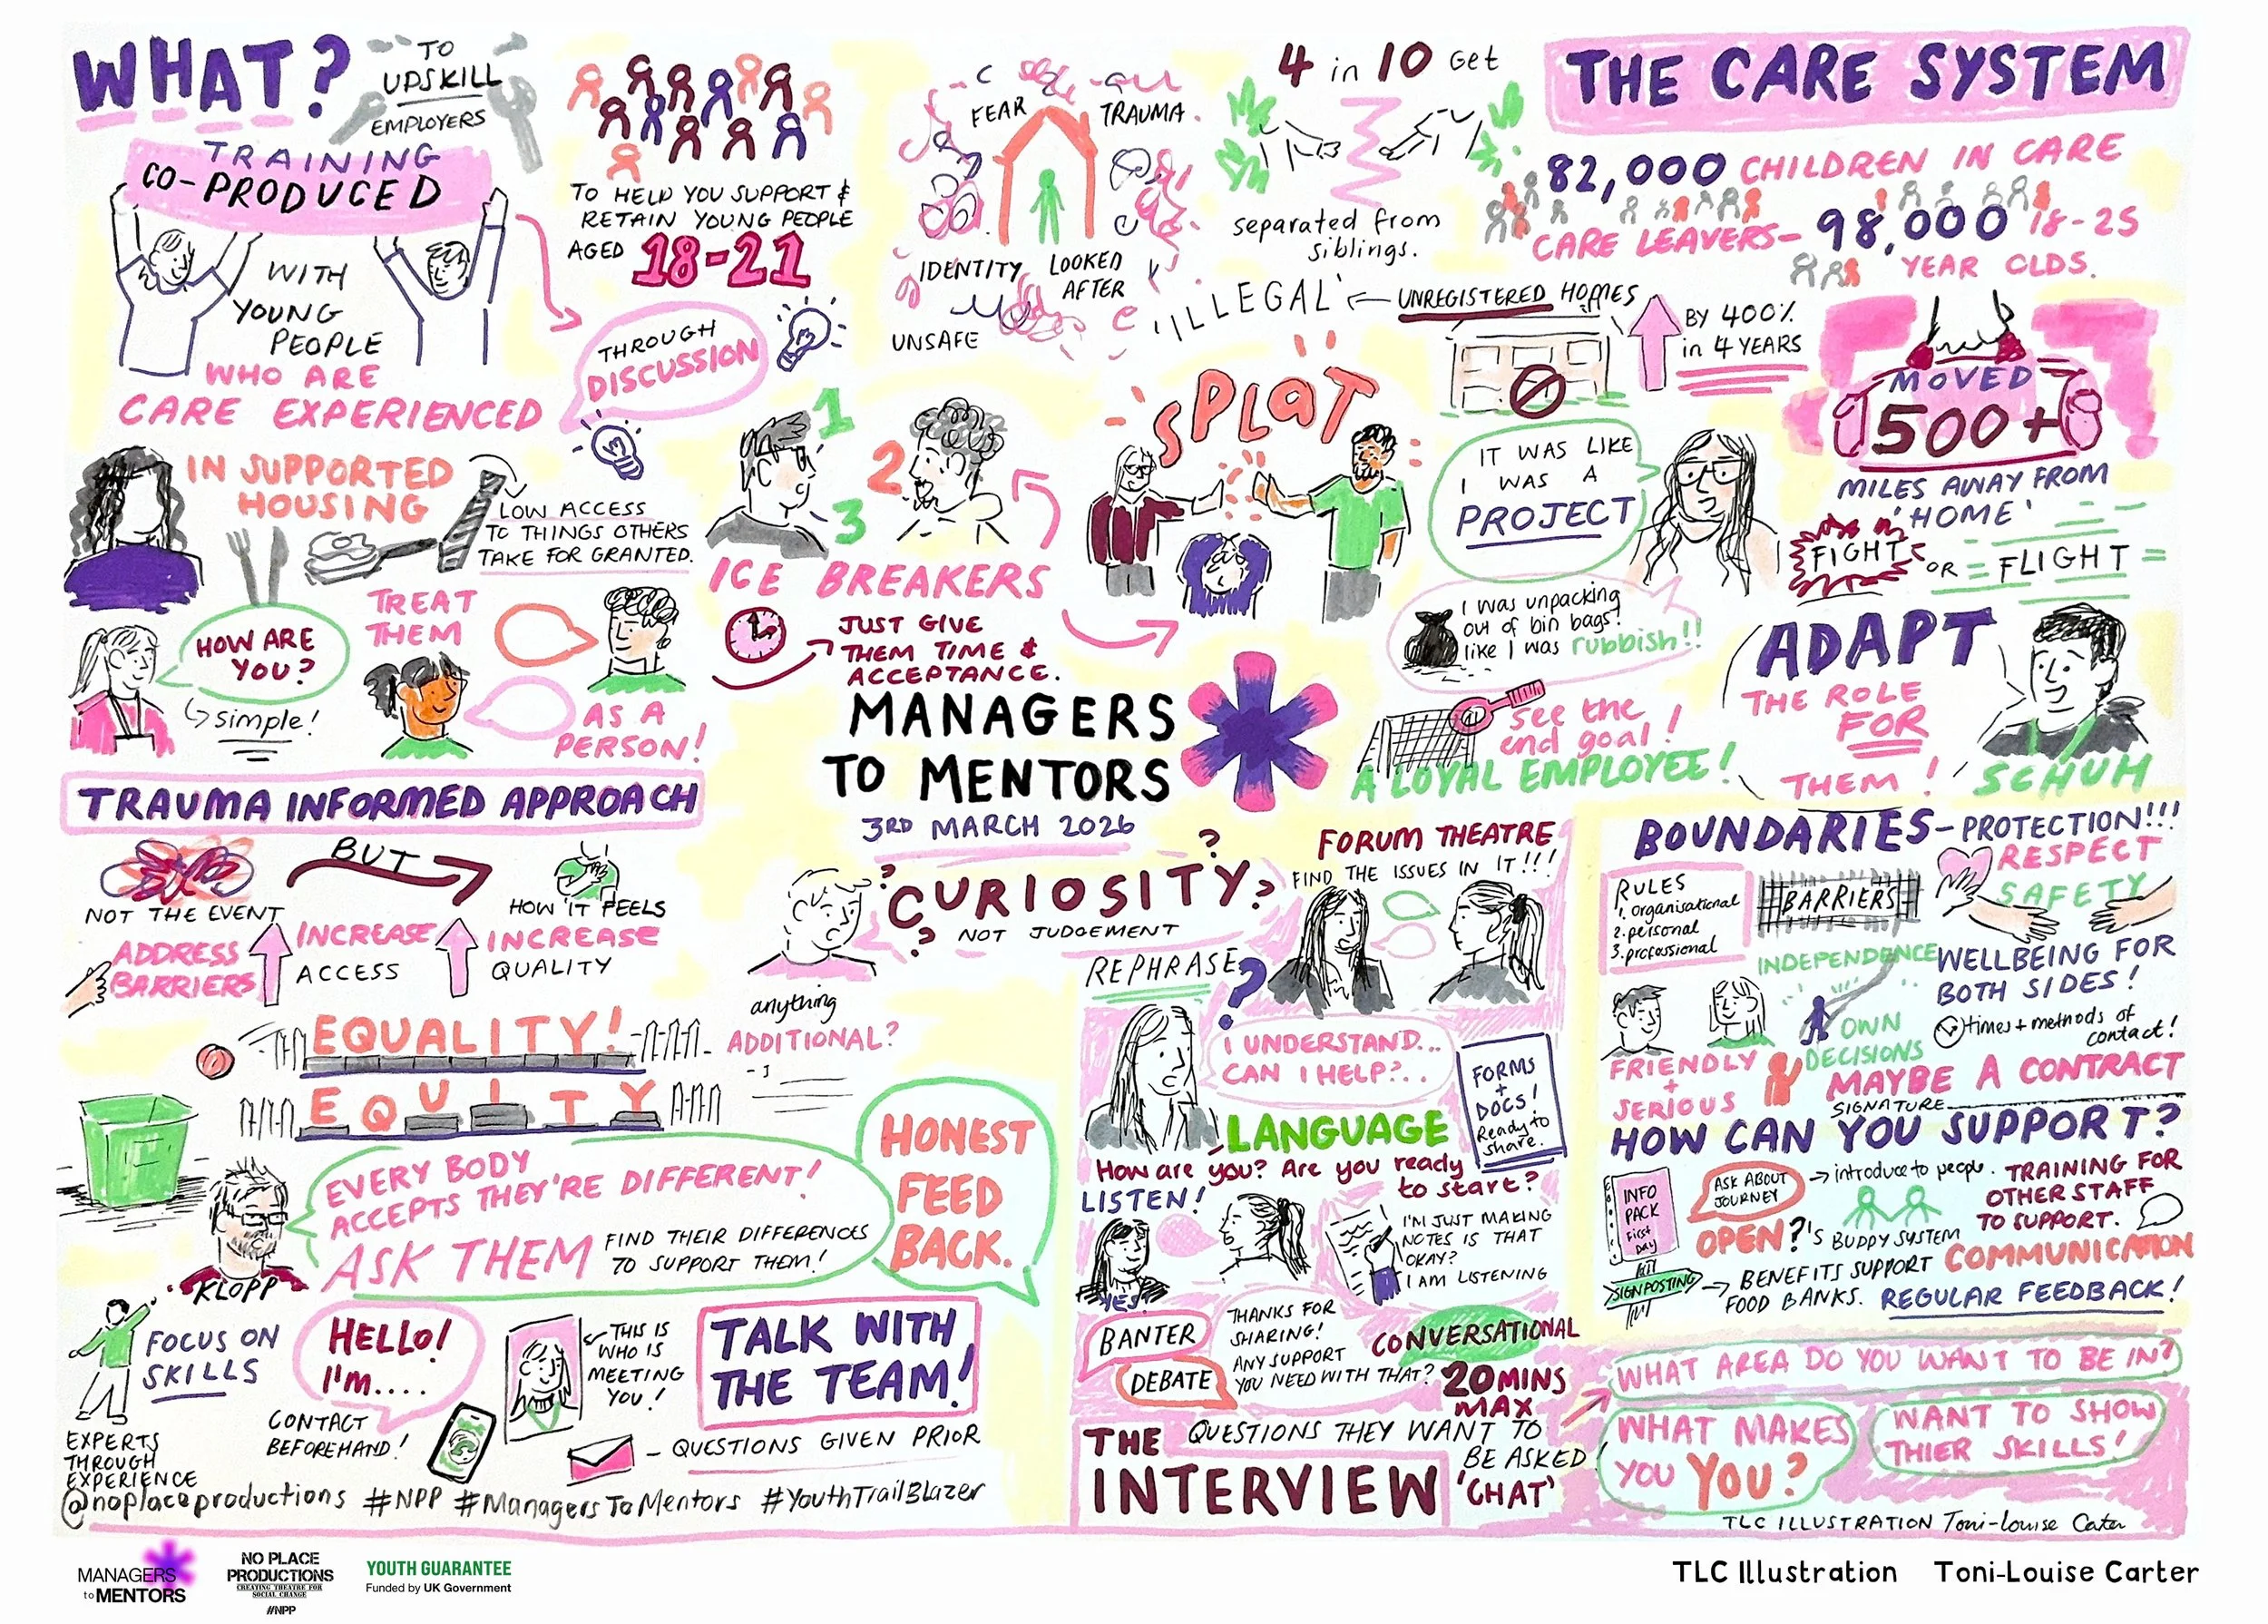 WHAT?
TO
UPSKILL
EMPLOYERS
TRAINING
CO-PRODUCED
WITH
YOUNG
PEOPLE
WHO ARE
CARE EXPERIENCED
IN SUPPORTED
HOUSING
LOW ACCESS
TO THINGS OTHERS
TAKE FOR GRANTED.
TO HELP YOU SUPPORT &
RETAIN YOUNG PEOPLE
AGED 18-21
THROUGH
DISCUSSION
1
2
3
ICE BREAKERS
JUST GIVE
THEM TIME &
ACCEPTANCE.
HOW ARE
YOU?
simple!
TREAT
THEM
AS A
PERSON!
FEAR
TRAUMA
IDENTITY
LOOKED
AFTER
UNSAFE
4 in 10 GET
separated from
siblings.
THE CARE SYSTEM
82,000 CHILDREN IN CARE
CARE LEAVERS- 98,000 18-25
YEAR OLDS.
'ILLEGAL' UNREGISTERED HOMES
BY 400%
in 4 YEARS
MOVED
500+
MILES AWAY FROM
'HOME'
SPLaT
IT WAS LIKE
I WAS A
PROJECT
FIGHT OR FLIGHT
I was unpacking
out of bin bags!
like I was rubbish!!
ADAPT
THE ROLE
FOR
THEM!
SCHUH
see the
end goal!
A LOYAL EMPLOYEE!
MANAGERS
TO MENTORS
3RD MARCH 2026
TRAUMA INFORMED APPROACH
NOT THE EVENT
BUT
HOW IT FEELS
ADDRESS
BARRIERS
INCREASE
ACCESS
INCREASE
QUALITY
EQUALITY!
EQUITY
CURIOSITY?
NOT JUDGEMENT
anything
ADDITIONAL?
EVERY BODY
ACCEPTS THEY'RE DIFFERENT!
ASK THEM
FIND THEIR DIFFERENCES
TO SUPPORT THEM!
KLOPP
HONEST
FEED
BACK.
FOCUS ON
SKILLS
EXPERTS
THROUGH
EXPERIENCE
HELLO!
I'm....
CONTACT
BEFOREHAND!
THIS IS
WHO IS
MEETING
YOU!
TALK WITH
THE TEAM!
- QUESTIONS GIVEN PRIOR
@noplaceproductions #NPP #ManagersToMentors #YouthTrailBlazer
FORUM THEATRE
FIND THE ISSUES IN IT!!!
REPHRASE?
I UNDERSTAND...
CAN I HELP?..
FORMS
+
DOCS!
Ready to
share.
LANGUAGE
How are you? Are you ready
to start?
LISTEN!
YES!
I'M JUST MAKING
NOTES IS THAT
OKAY?
I AM LISTENING
BANTER
DEBATE
THANKS FOR
SHARING!
ANY SUPPORT
YOU NEED WITH THAT?
CONVERSATIONAL
20 MINS
MAX
THE
INTERVIEW
QUESTIONS THEY WANT TO
BE ASKED!
'CHAT'
BOUNDARIES-PROTECTION!!!
RESPECT
SAFETY
RULES
1. organisational
2. personal
3. professional
BARRIERS
INDEPENDENCE
OWN
DECISIONS
WELLBEING FOR
BOTH SIDES!
times + methods of
contact!
FRIENDLY
+
SERIOUS
MAYBE A CONTRACT
SIGNATURE
HOW CAN YOU SUPPORT?
INFO
PACK
First
Day
ASK ABOUT
JOURNEY
introduce to people.
TRAINING FOR
OTHER STAFF
TO SUPPORT.
OPEN?'S
BUDDY SYSTEM
COMMUNICATION
SIGNPOSTING
BENEFITS SUPPORT
FOOD BANKS.
REGULAR FEEDBACK!
WHAT AREA DO YOU WANT TO BE IN?
WHAT MAKES
YOU YOU?
WANT TO SHOW
THIER SKILLS!
TLC ILLUSTRATION Toni-Louise Carter
MANAGERS
to MENTORS
NO PLACE
PRODUCTIONS
CREATING THEATRE FOR
SOCIAL CHANGE
#NPP
YOUTH GUARANTEE
Funded by UK Government
TLC Illustration Toni-Louise Carter